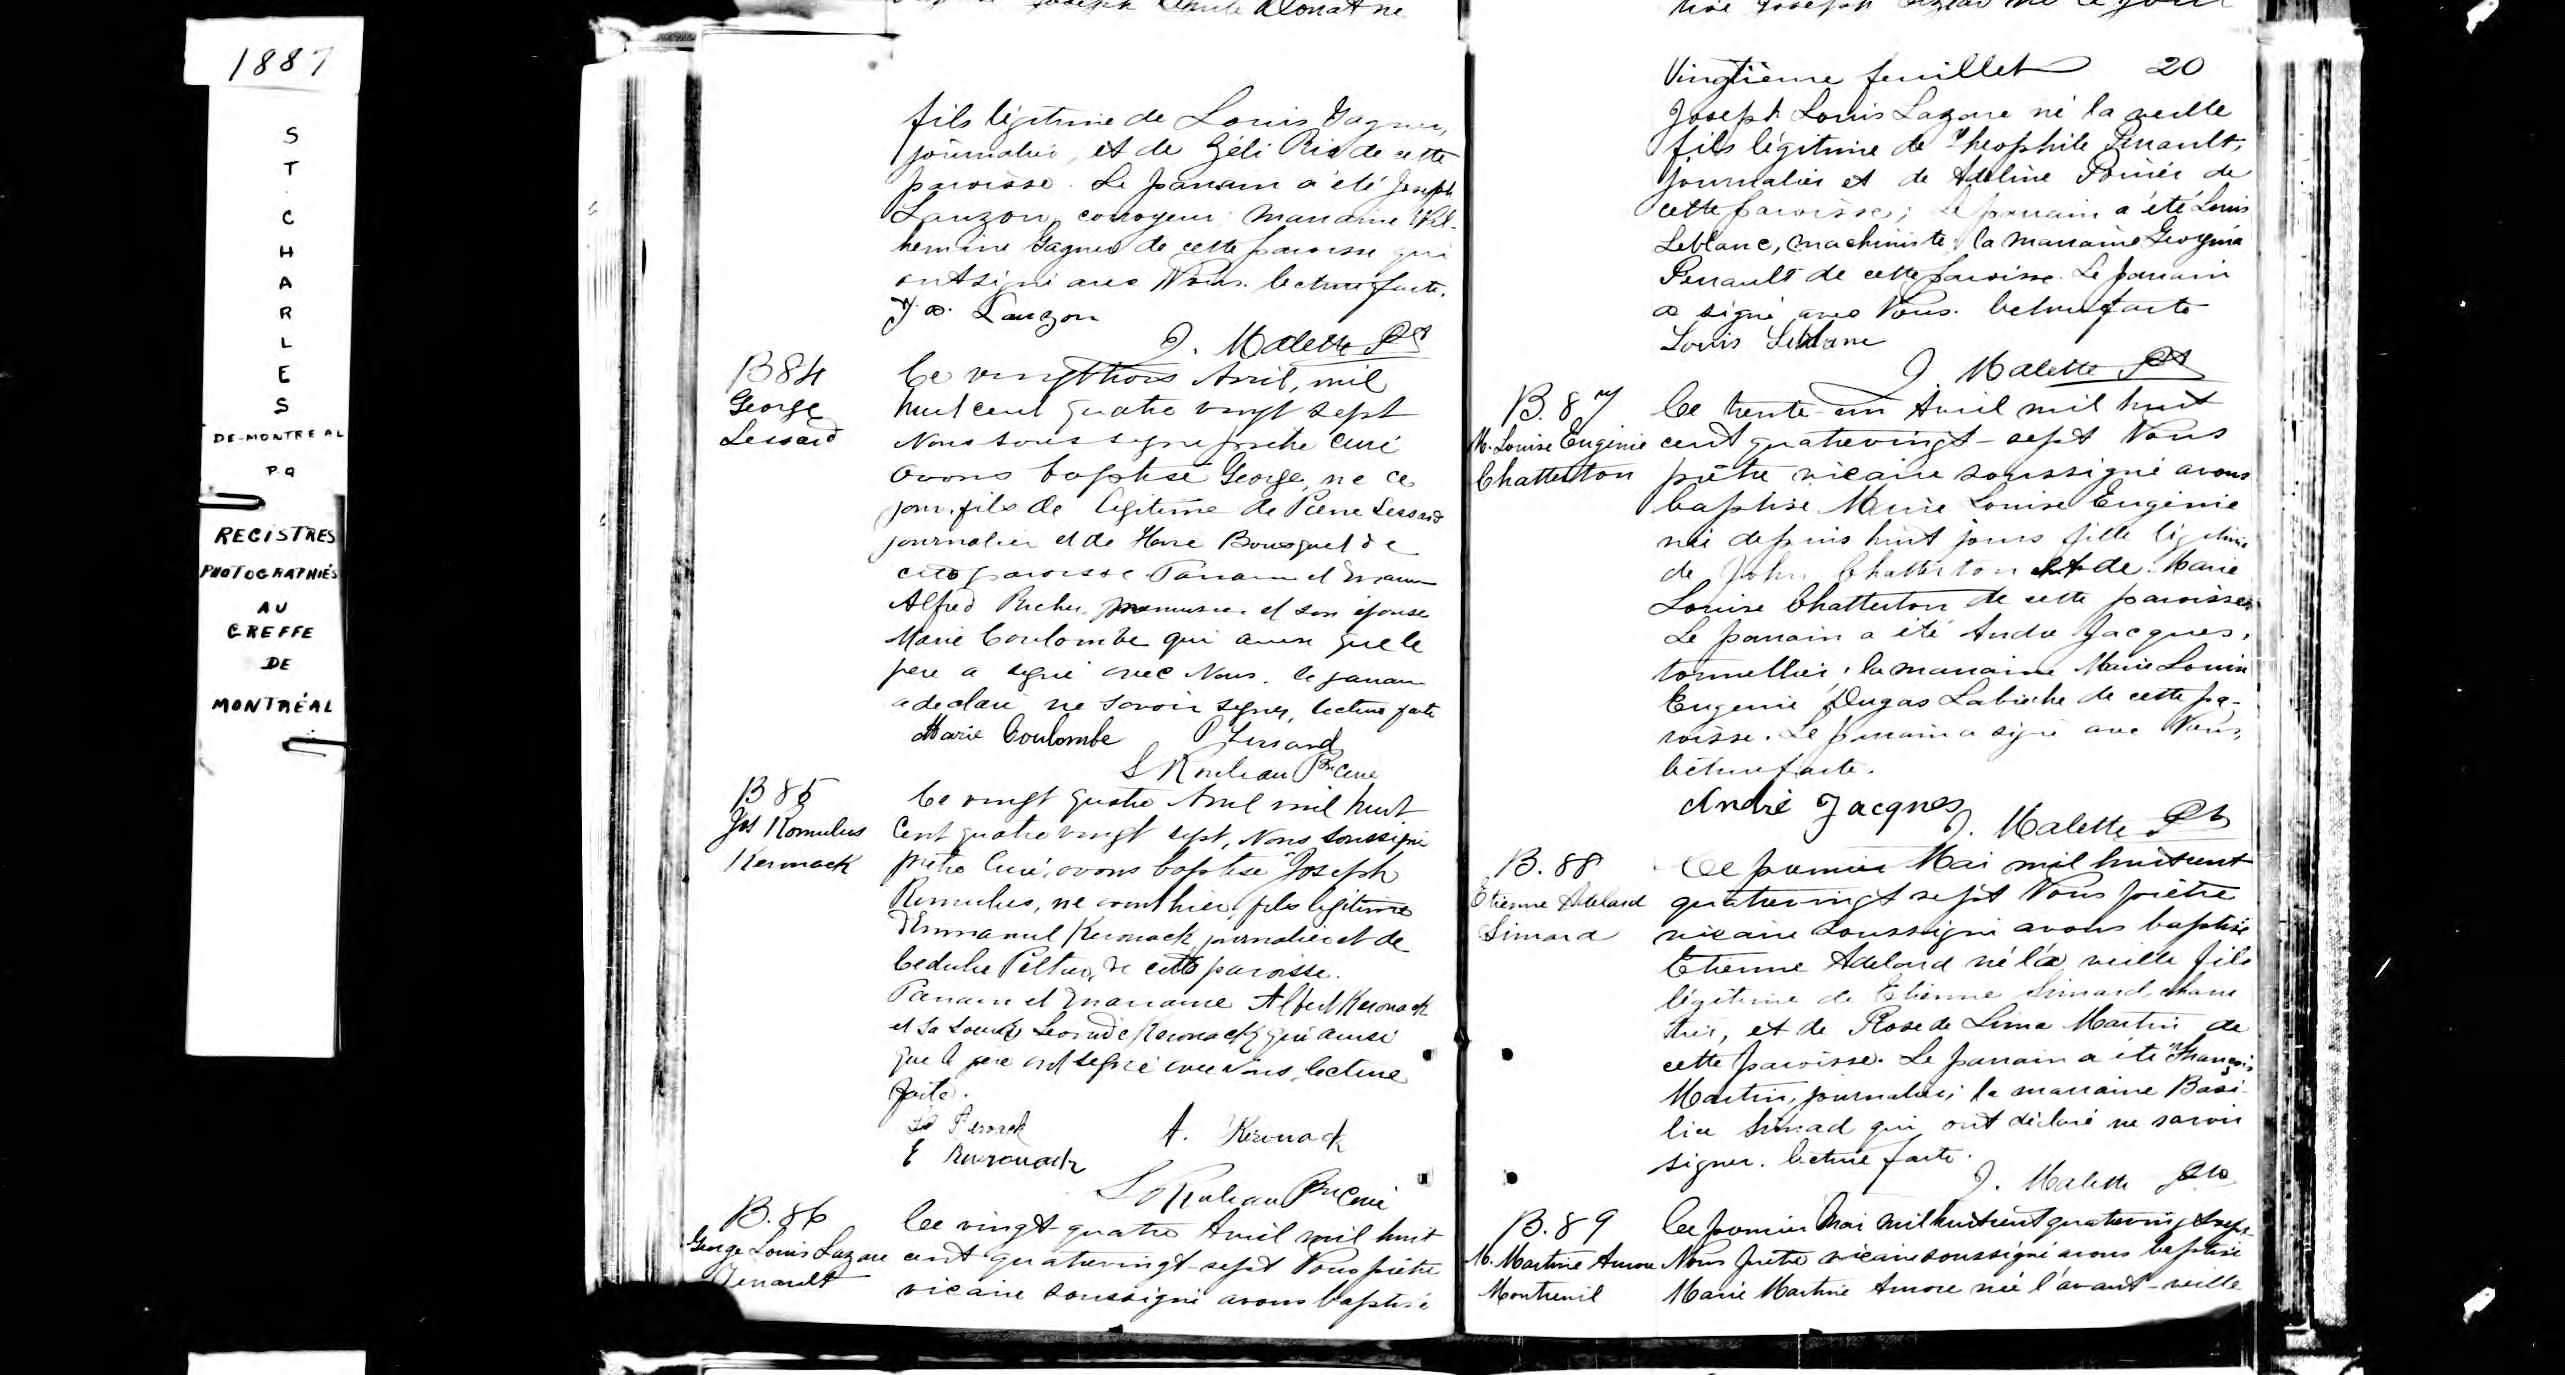 1887
S
T
C
H
A
R
L
E
S
DE-MONTREAL
PQ
REGISTRES
PHOTOGRAPHIÉS
AU
GREFFE
DE
MONTRÉAL
Joseph
fils légitime de Louis Gagner,
journalier, et de Zéli de cette
paroisse. Le parrain a été Joseph
Lauzon, corroyeur, marraine Wil-
hemine Gagner de cette paroisse qui
ont signé avec Nous. lecture faite.
Lauzon
J. Malette Ptr
B 84
George
Lessard
Ce vingt trois Avril, mil
huit cent quatre vingt sept
Nous soussigné prêtre Curé
avons baptisé George, né ce
jour, fils de légitime de Pierre Lessard
journalier et de Bousquet de
cette paroisse Parrain et
Alfred et son épouse
Marie Coulombe qui ainsi que le
père a signé avec Nous. le parrain
a déclaré ne savoir signer, lecture faite
Marie Coulombe P Lessard
L Rouleau Ptr Curé
B 85
Jos Romulus
Kerouack
Ce vingt quatre Avril mil huit
Cent quatre vingt sept, Nous soussigné
prêtre Curé, avons baptisé Joseph
Romulus, né avant hier, fils légitime
d'Emmanuel Kerouack, journalier et de
Cedulie Peltier, de cette paroisse.
Parrain et marraine Albert Kerouack
et sa soeur Kerouack, qui ainsi
que le père ont signé avec Nous, lecture
faite.
A. Kérouack
E Kerouack
L Rouleau Ptr Curé
B. 86
George Louis Lazare
Penault
Ce vingt-quatre Avril mil huit
cent quatrevingt-sept Nous prêtre
vicaire soussigné avons baptisé
Vingtième feuillet 20
Joseph Louis Lazare né la veille
fils légitime de Théophile Penault,
journalier et de Adeline Poirier de
cette paroisse; le parrain a été Louis
Leblanc, machiniste, la marraine Georgina
Penault de cette paroisse. Le parrain
a signé avec Nous. lecture faite
Louis Leblanc
J. Malette Ptr
B. 87
M. Louise Eugénie
Chatterton
Ce trente-un Avril mil huit
cent quatrevingt-sept Nous
prêtre vicaire soussigné avons
baptisé Marie Louise Eugénie
née depuis huit jours fille légitime
de John Chatterton et de Marie
Louise Chatterton de cette paroisse
Le parrain a été André Jacques,
tonnellier, la marraine Marie Louise
Eugénie Dugas Labrèche de cette pa-
roisse. Le parrain a signé avec Nous,
lecture faite.
André Jacques
J. Malette Ptr
B. 88
Etienne Adelard
Simard
Ce premier Mai mil huit cent
quatrevingt sept Nous prêtre
vicaire soussigné avons baptisé
Etienne Adelard né la veille fils
légitime de Etienne Simard, charre
tier, et de Rose de Lima Martin de
cette paroisse. Le parrain a été François
Martin, journalier, la marraine Basi-
lice Simard qui ont déclaré ne savoir
signer. lecture faite.
J. Malette Ptr
B. 89
M. Martine Amore
Montreuil
Ce premier Mai mil huit cent quatrevingt sept
Nous prêtre vicaire soussigné avons baptisé
Marie Martine Amore née l'avant-veille